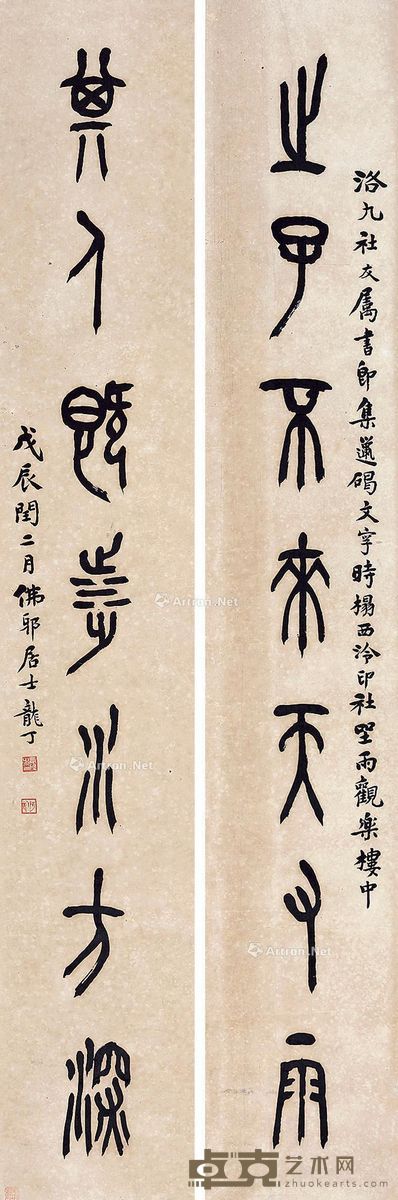 洛九社友屬書即集邋碣文字時搨西泠印社坐雨觀樂樓中
之子不來天雨
其人既水方深
戊辰閏二月佛耶居士龍丁
Artron.Net
Artron.Net
Artron.Net
卓克艺术网
zhuokearts.com